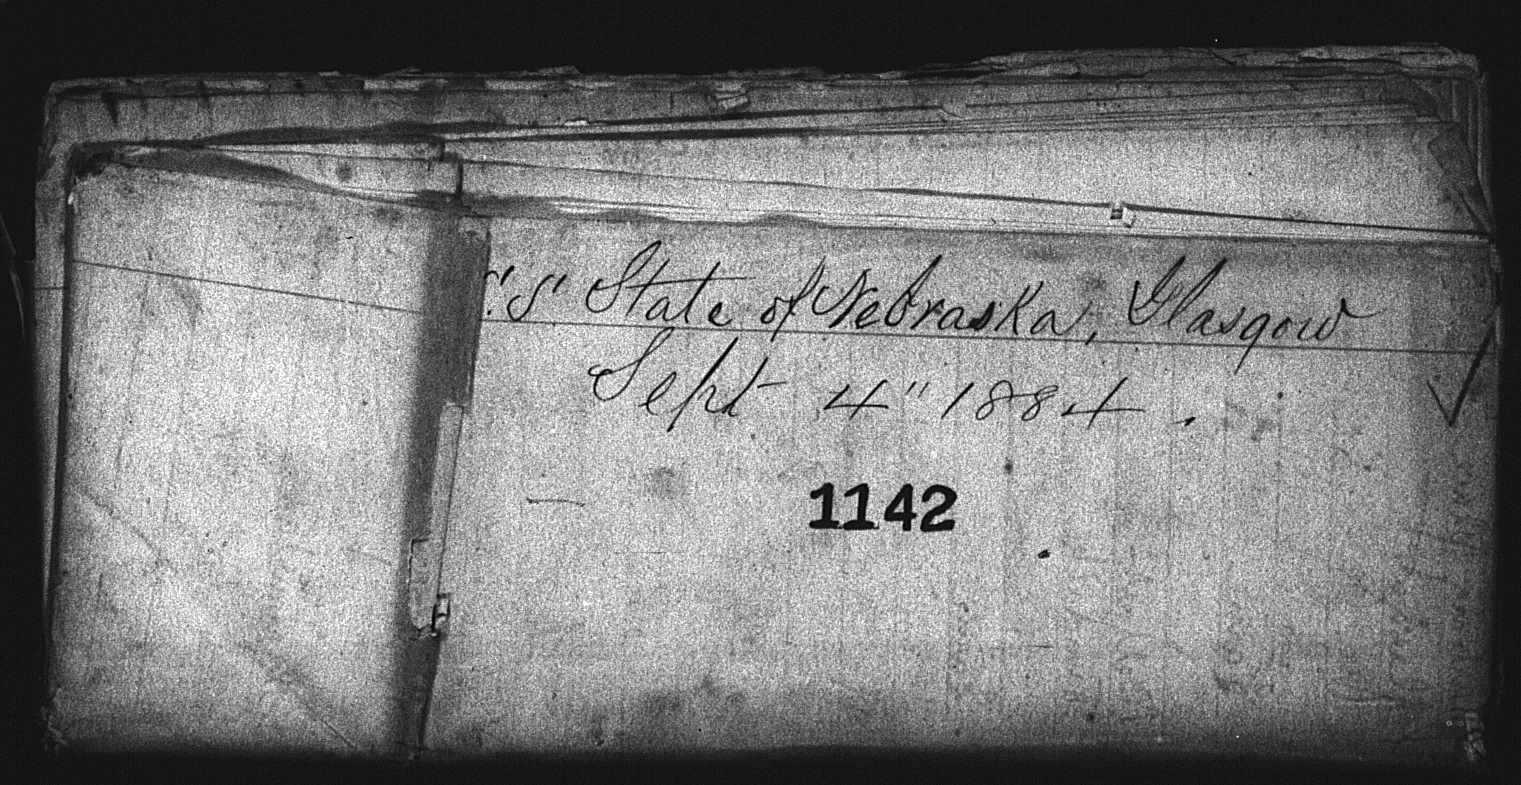 "S" State of Nebraska, Glasgow
Sept 4" 1884.
1142